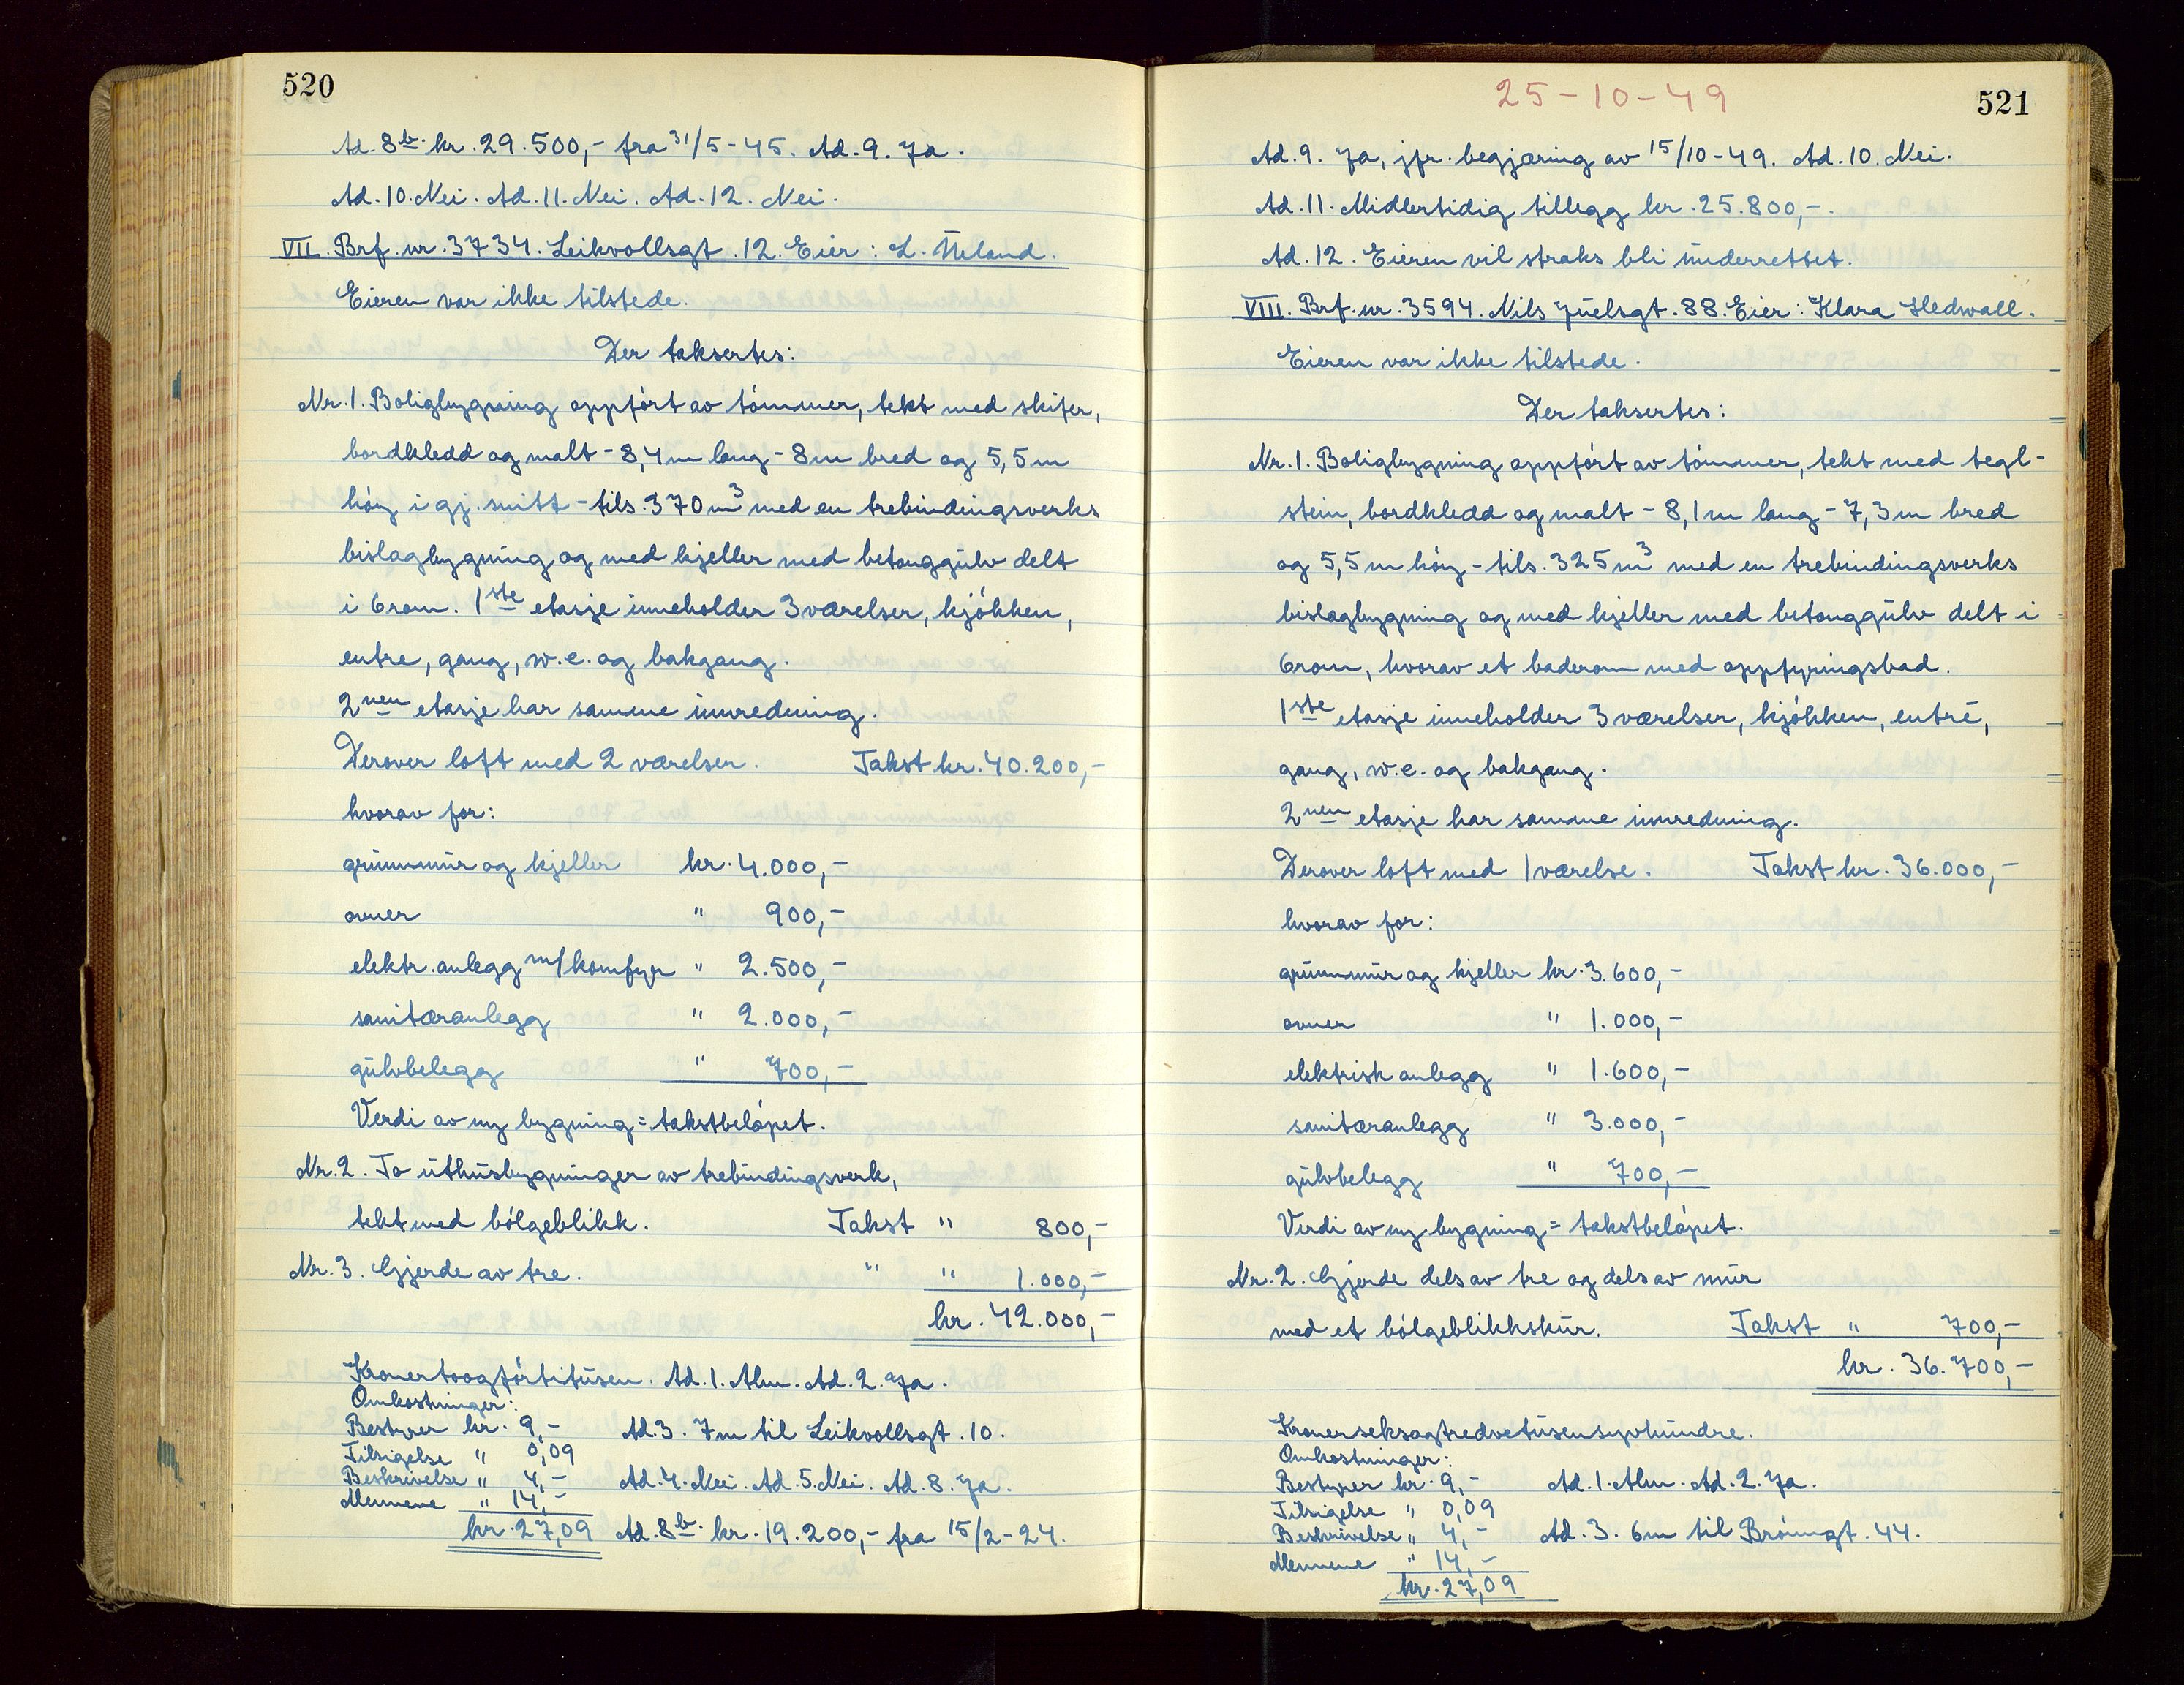 520
Ad. 8b. kr. 29.500,- fra 31/5-45. Ad. 9. Ja.
Ad. 10. Nei. Ad. 11. Nei. Ad. 12. Nei.
VII. Brf. nr. 3734. Leikvollsgt. 12. Eier: L. Ueland.
Eieren var ikke tilstede.
Der taksertes:
Nr. 1. Boligbygning oppført av tømmer, tekt med skifer,
bordkledd og malt - 8,4 m lang - 8 m bred og 5,5 m
høy i gj. snitt - tils. 370 m³ med en trebindingsverks
bislagbygning og med kjeller med betonggulv delt
i 6 rom. 1ste etasje inneholder 3 værelser, kjøkken,
entre, gang, w.c. og bakgang.
2nen etasje har samme innredning.
Derover loft med 2 værelser. Takst kr. 40.200,-
hvorav for:
grunnmur og kjeller kr. 4.000,-
ovner " 900,-
elektr. anlegg m/komfyr " 2.500,-
sanitæranlegg " 2.000,-
gulvbelegg " 700,-
Verdi av ny bygning = takstbeløpet.
Nr. 2. To uthusbygninger av trebindingsverk,
tekt med bølgeblikk. Takst " 800,-
Nr. 3. Gjerde av tre. " " 1.000,-
kr. 42.000,-
Kronertoogførtitusen. Ad. 1. Alm. Ad. 2. Ja.
Omkostninger:
Bestyrer kr. 9,- Ad. 3. 7 m til Leikvollsgt. 10.
Tilsigelse " 0,09
Beskrivelse " 4,- Ad. 4. Nei. Ad. 5. Nei. Ad. 8. Ja.
Mennene " 14,-
kr. 27,09 Ad. 8b. kr. 19.200,- fra 15/2-24.
25-10-49
521
Ad. 9. Ja, jfr. begjæring av 15/10-49. Ad. 10. Nei.
Ad. 11. Midlertidig tillegg kr. 25.800,-.
Ad. 12. Eieren vil straks bli underrettet.
VIII. Brf. nr. 3594. Nils Juelsgt. 88. Eier: Klara Hedwall.
Eieren var ikke tilstede.
Der taksertes:
Nr. 1. Boligbygning oppført av tømmer, tekt med tegl-
stein, bordkledd og malt - 8,1 m lang - 7,3 m bred
og 5,5 m høy - tils. 325 m³ med en trebindingsverks
bislagbygning og med kjeller med betonggulv delt i
6 rom, hvorav et baderom med oppfyringsbad.
1ste etasje inneholder 3 værelser, kjøkken, entré,
gang, w.c. og bakgang.
2nen etasje har samme innredning.
Derover loft med 1 værelse. Takst kr. 36.000,-
hvorav for:
grunnmur og kjeller kr. 3.600,-
ovner " 1.000,-
elektrisk anlegg " 1.600,-
sanitæranlegg " 3.000,-
gulvbelegg " 700,-
Verdi av ny bygning = takstbeløpet.
Nr. 2. Gjerde dels av tre og dels av mur
med et bølgeblikkskur. Takst " 700,-
kr. 36.700,-
Kronerseksogtredvetusensyvhundre.
Omkostninger:
Bestyrer kr. 9,- Ad. 1. Alm. Ad. 2. Ja.
Tilsigelse " 0,09
Beskrivelse " 4,- Ad. 3. 6 m til Brønngt. 44.
Mennene " 14,-
kr. 27,09